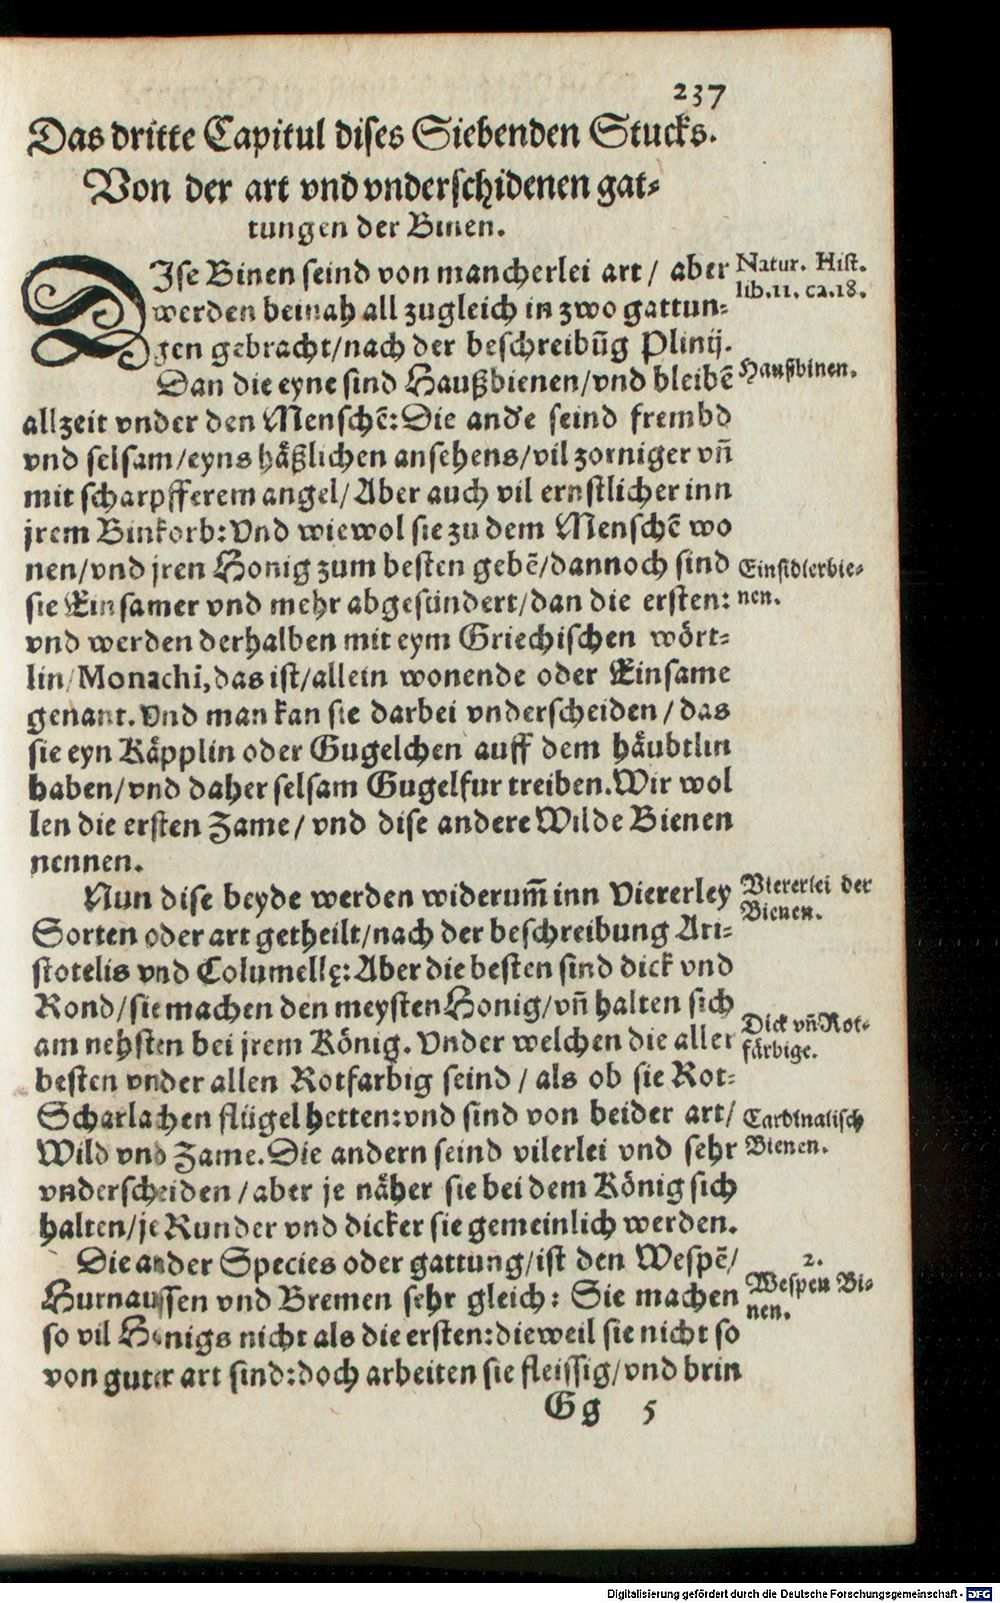 237
Das dritte Capitul dises Siebenden Stucks.
Von der art vnd vnderschidenen gat-
tungen der Binen.
DIse Binen seind von mancherlei art / aber
werden beinah all zugleich in zwo gattun-
gen gebracht/nach der beschreibũg Plinij.
Dan die eyne sind Haußbienen/vnd bleibẽ
allzeit vnder den Menschẽ: Die and'e seind frembd
vnd selsam/eyns häßlichen ansehens/vil zorniger vñ
mit scharpfferem angel/ Aber auch vil ernstlicher inn
jrem Binkorb: Vnd wiewol sie zu dem Menschẽ wo
nen/vnd jren Honig zum besten gebẽ/dannoch sind
sie Einsamer vnd mehr abgesündert/dan die ersten:
vnd werden derhalben mit eym Griechischen wört-
lin/Monachi,das ist/allein wonende oder Einsame
genant. Vnd man kan sie darbei vnderscheiden / das
sie eyn Käpplin oder Gugelchen auff dem häubtlin
haben/vnd daher selsam Gugelfur treiben. Wir wol
len die ersten Zame/ vnd dise andere Wilde Bienen
nennen.
Nun dise beyde werden widerum̃ inn Viererley
Sorten oder art getheilt/nach der beschreibung Ari-
stotelis vnd Columellę: Aber die besten sind dick vnd
Rond/sie machen den meysten Honig/vñ halten sich
am nehsten bei jrem König. Vnder welchen die aller
besten vnder allen Rotfarbig seind / als ob sie Rot-
Scharlachen flügel hetten: vnd sind von beider art/
Wild vnd Zame. Die andern seind vilerlei vnd sehr
vnderscheiden / aber je näher sie bei dem König sich
halten/je Runder vnd dicker sie gemeinlich werden.
Die ander Species oder gattung/ist den Wespẽ/
Hurnaussen vnd Bremen sehr gleich: Sie machen
so vil Honigs nicht als die ersten: dieweil sie nicht so
von guter art sind: doch arbeiten sie fleissig/vnd brin
Gg 5
Natur. Hist.
lib.11. ca.18.
Haußbinen.
Einsidlerbie-
nen.
Viererlei der
Bienen.
Dick vñ Rot-
färbige.
Cardinalisch
Bienen.
2.
Wespen Bi-
nen.
Digitalisierung gefördert durch die Deutsche Forschungsgemeinschaft - DFG